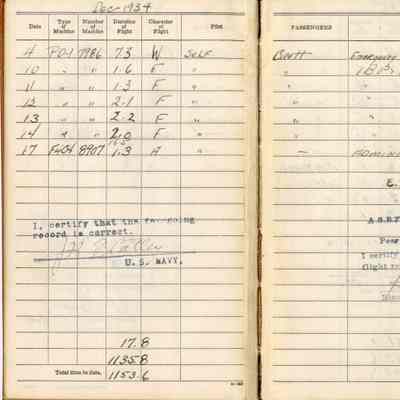 Dec-1934
Date Type of Machine Number of Machine Duration of Flight Character of Flight Pilot PASSENGERS
4 7986 7.3 W SELF Brett
10 " " 1.6 F " "
11 " " 1.3 F " "
12 " " 2.1 F " "
13 " " 2.2 F " "
14 " " 2.0 F " "
17 F4O4 8907 1.3 A " -
I, certify that the foregoing
record is correct.
U. S. NAVY.
I certify
flight
17.8
1135.8
Total time to date, 1153.6